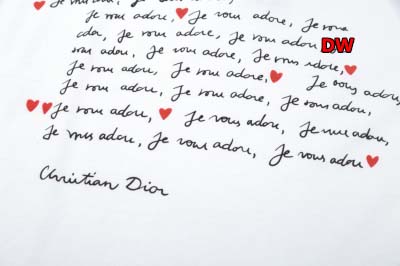 Je vous adore, Je vous
Je vous adore, ♥ Je vous adore, Je vous
adore, Je vous adore, Je vous adore DW
vous adore, Je vous adore, Je vous adore, ♥
Je vous adore, Je vous adore, ♥ Je vous adore,
Je vous adore, Je vous adore, Je vous adore,
♥ ♥ Je vous adore, ♥ Je vous adore, Je vous adore,
Je vous adore, Je vous adore, Je vous adore ♥
Christian Dior